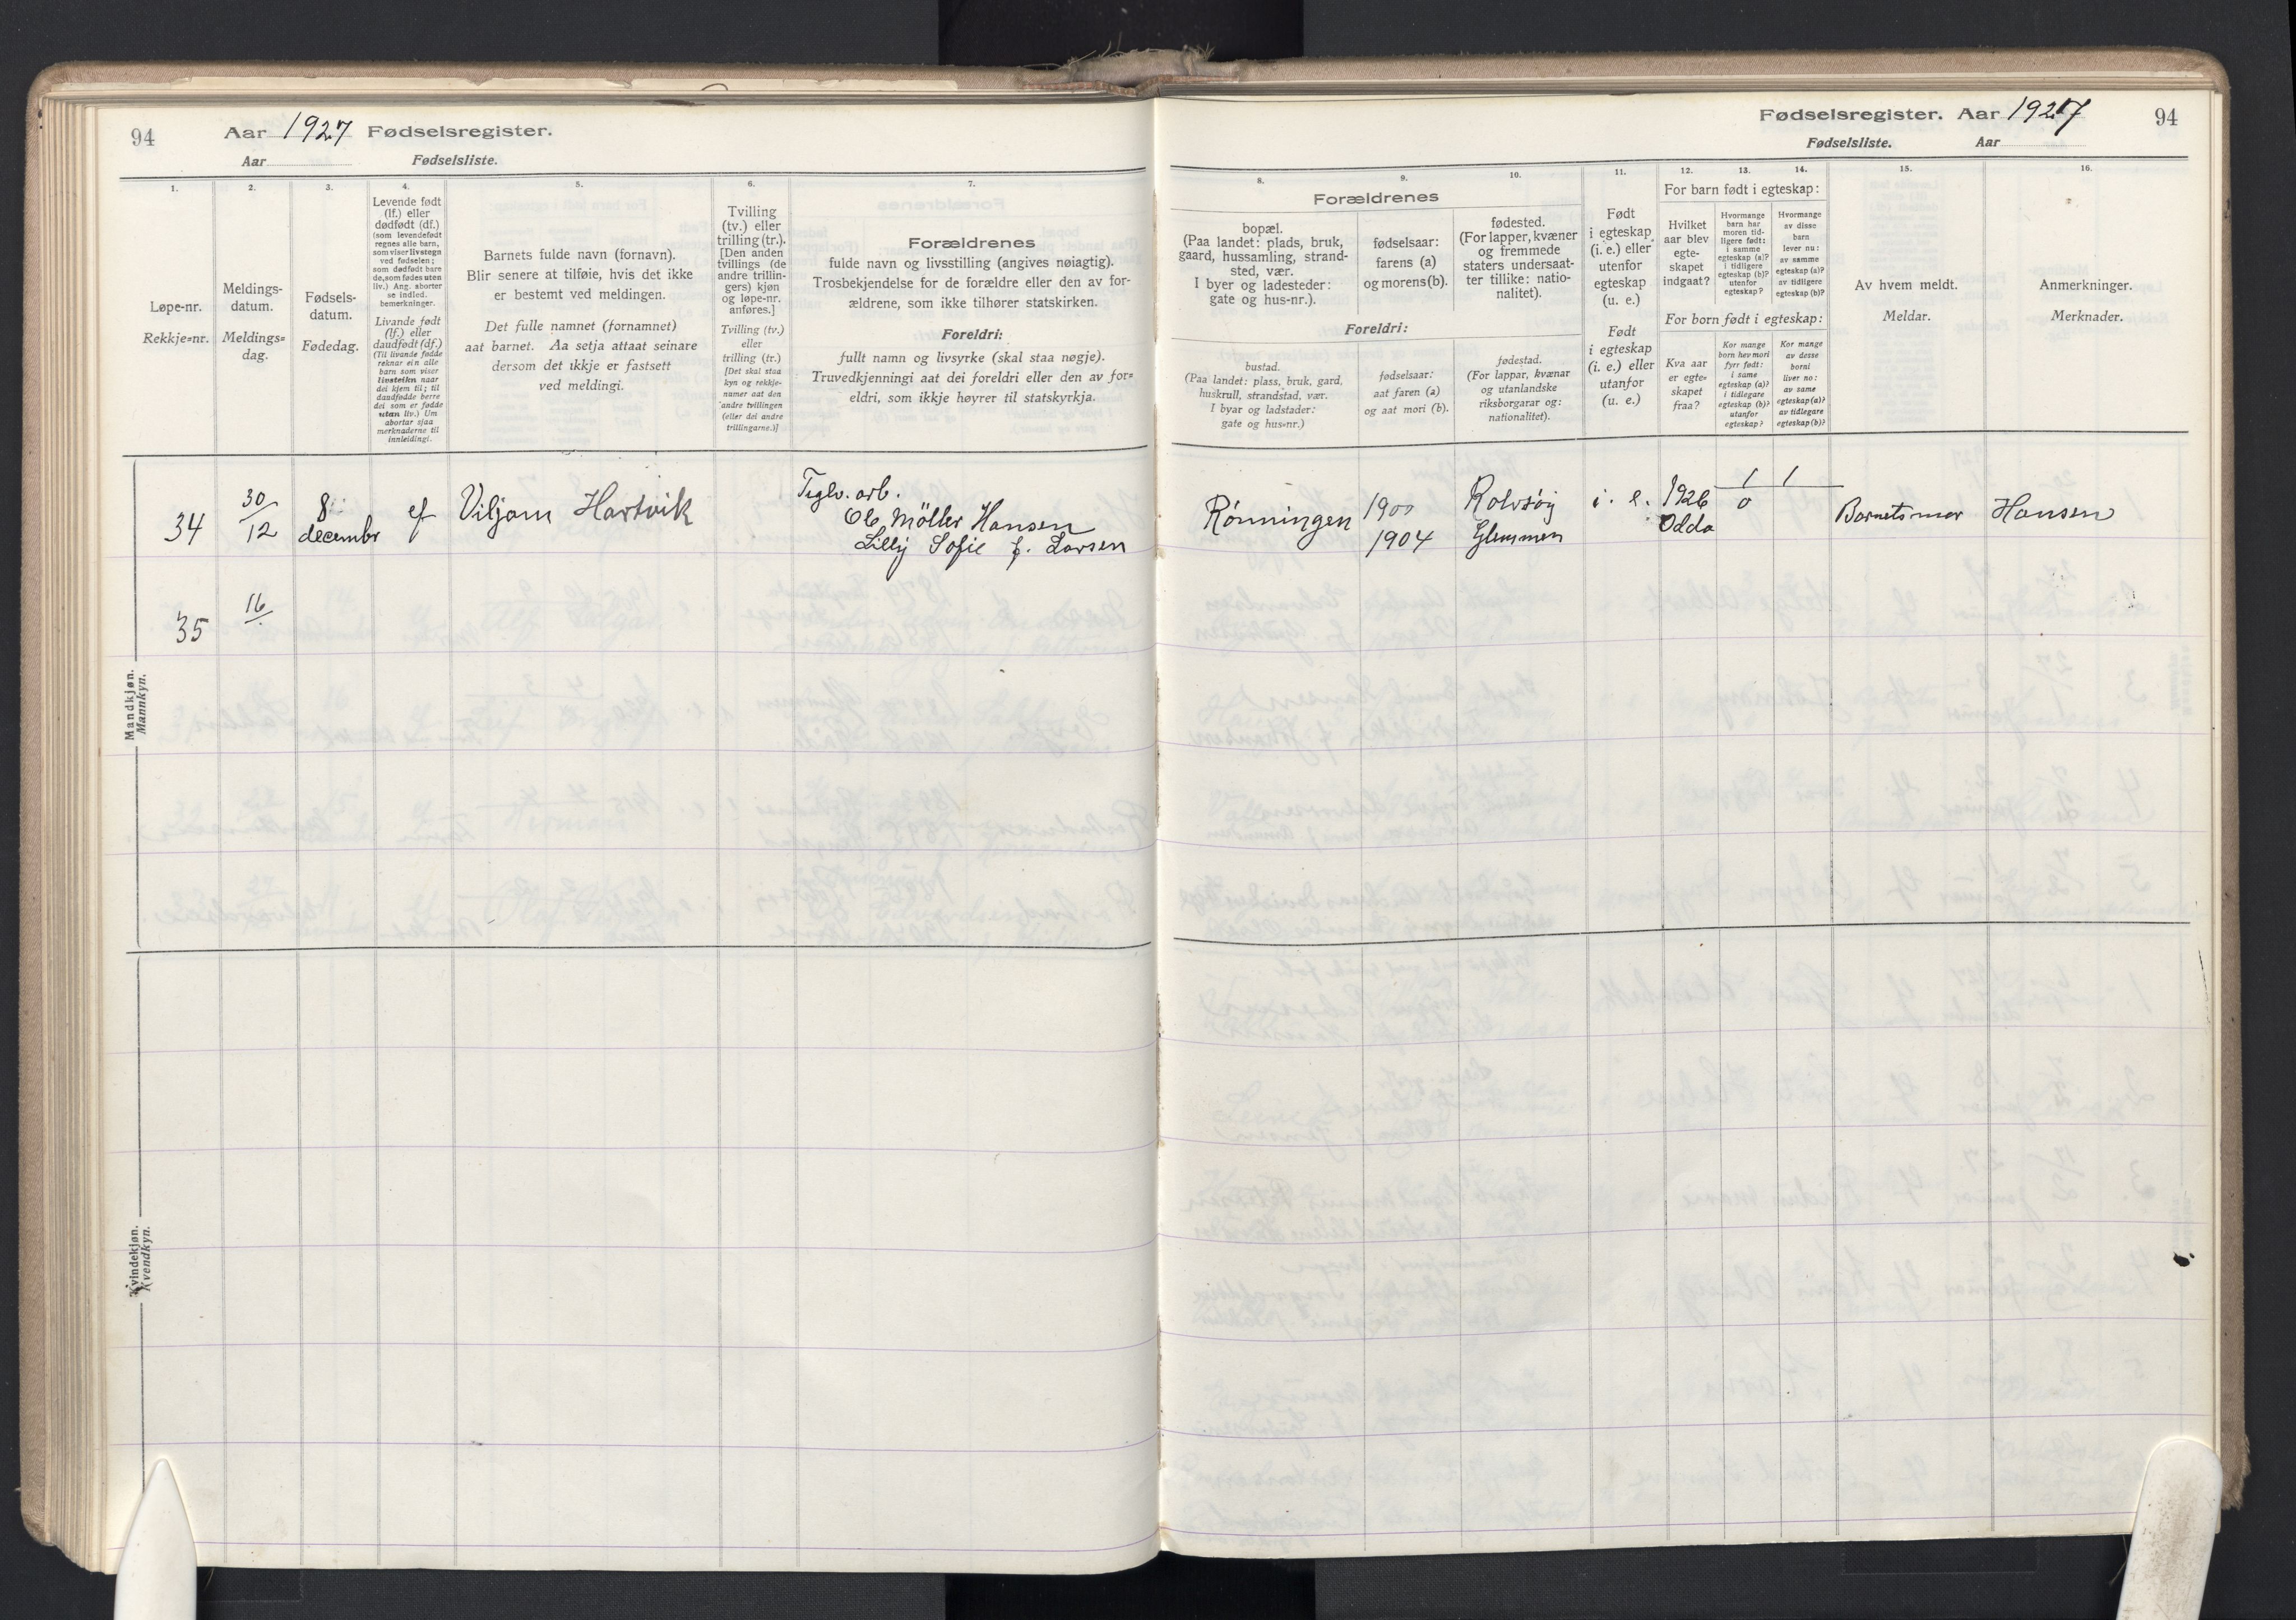 94
Aar 1927 Fødselsregister.
Aar Fødselsliste.
1. 2. 3. 4. 5. 6. 7.
Løpe-nr.
Rekkje=nr.
Meldings-
datum.
Meldings=
dag.
Fødsels-
datum.
Fødedag.
Levende født
(lf.) eller
dødfødt (df.)
(som levendefødt
regnes alle barn,
som viser livstegn
ved fødselen;
som dødfødt bare
de, som fødes uten
liv.) Ang. aborter
se indled.
bemerkninger.
Livande født
(lf.) eller
daudfødt (df.)
(Til livande fødde
reknar ein alle
barn som viser
livsteikn naar
dei kjem til; til
daudfødde berre
dei som er fødde
utan liv.) Um
abortar sjaa
merknaderne til
innleidingi.
Barnets fulde navn (fornavn).
Blir senere at tilføie, hvis det ikke
er bestemt ved meldingen.
Det fulle namnet (fornamnet)
aat barnet. Aa setja attaat seinare
dersom det ikkje er fastsett
ved meldingi.
Tvilling
(tv.) eller
trilling (tr.).
[Den anden
tvillings (de
andre trillin-
gers) kjøn
og løpe-nr.
anføres.]
Tvilling (tv.)
eller
trilling (tr.)
[Det skal staa
kyn og rekkje-
numer aat den
andre tvillingen
(eller dei andre
trillingarne.)]
Forældrenes
fulde navn og livsstilling (angives nøiagtig).
Trosbekjendelse for de forældre eller den av for-
ældrene, som ikke tilhører statskirken.
Foreldri:
fullt namn og livsyrke (skal staa nøgje).
Truvedkjenningi aat dei foreldri eller den av for=
eldri, som ikkje høyrer til statskyrkja.
Mandkjøn.
Mannkyn.
34
30/12
8
decembr
Viljam Hartvik
Teglv. arb.
Ole Möller Hansen
Lilly Sofie f. Larsen
35
16
Kvindekjøn.
Kvendkyn.
Fødselsregister. Aar 1927
94
Fødselsliste. Aar
8. 9. 10. 11. 12. 13. 14. 15. 16.
Forældrenes
bopæl.
(Paa landet: plads, bruk,
gaard, hussamling, strand-
sted, vær.
I byer og ladesteder:
gate og hus-nr.).
fødselsaar:
farens (a)
og morens (b).
fødested.
(For lapper, kvæner
og fremmede
staters undersaat-
ter tillike: natio-
nalitet).
Foreldri:
bustad.
(Paa landet: plass, bruk, gard,
huskrull, strandstad, vær.
I byar og ladstader:
gate og hus=nr.)
fødselsaar:
aat faren (a)
og aat mori (b).
fødestad.
(For lappar, kvænar
og utanlandske
riksborgarar og:
nationalitet).
Født
i egteskap
(i. e.) eller
utenfor
egteskap
(u. e.)
Født
i egteskap
(i. e.) eller
utanfor
(u. e.)
For barn født i egteskap:
Hvilket
aar blev
egte-
skapet
indgaat?
Hvormange
barn har
moren tid-
ligere født:
i samme
egteskap (a)?
i tidligere
egteskap (b)?
utenfor
egteskap?
Hvormange
av disse
barn
lever nu:
av samme
egteskap (a)?
av tidligere
egteskap (b)?
For born født i egteskap:
Kva aar
er egte=
skapet
fraa?
Kor mange
born hev mori
fyrr født:
i same
egteskap (a)?
i tidlegare
egteskap (b)?
utanfor
egteskap?
Kor mange
av desse
borni
liver no:
av same
egteskap (a)?
av tidlegare
egteskap (b)?
Av hvem meldt.
Meldar.
Anmerkninger.
Merknader.
Rönningen
1900
1904
Rolvsöy
Glemmen
i. e.
1926
Odda
1 1
0
Barnets mor
Hansen